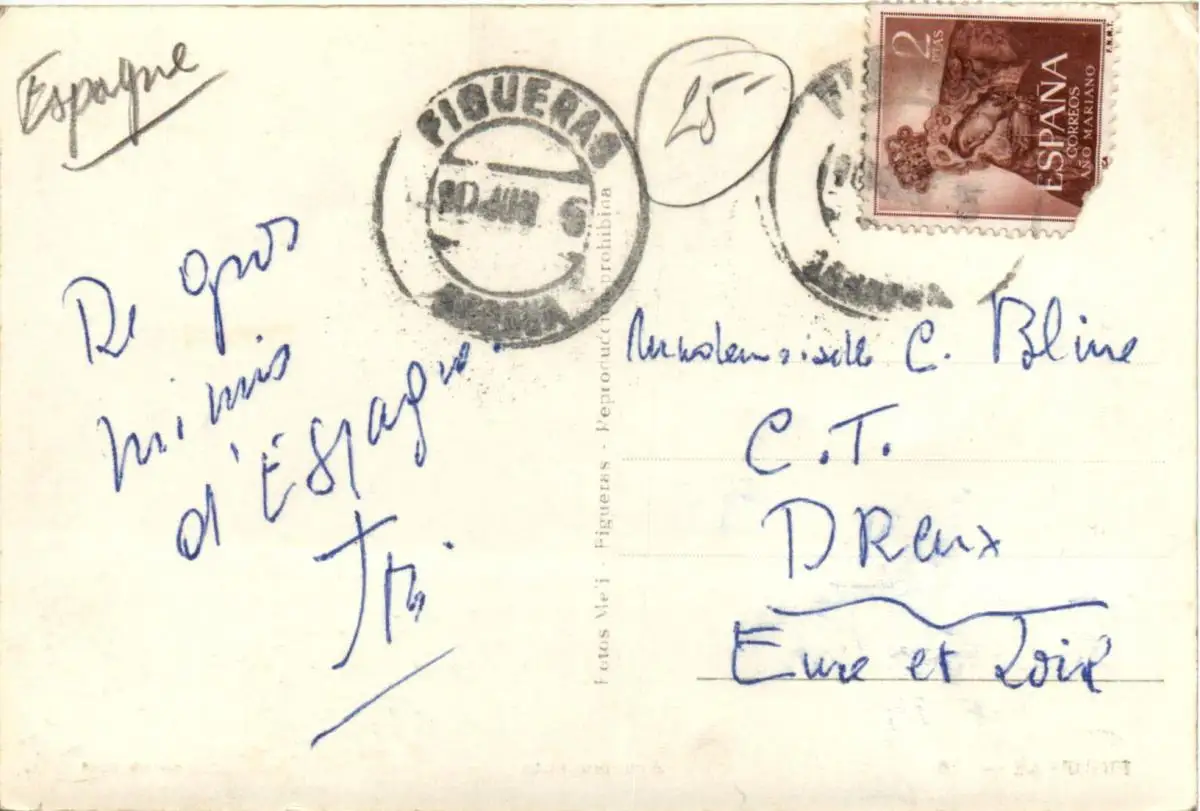 Espagne
FIGUERAS
JUN 6
25
2
PTAS
ESPAÑA
CORREOS
AÑO MARIANO
F.N.M.T.
De gros
mimis
d'Espagne.
Mademoiselle C. Bline
C.T.
DReux
Eure et Loir
Fotos Meli - Figueras - Reproducción prohibida